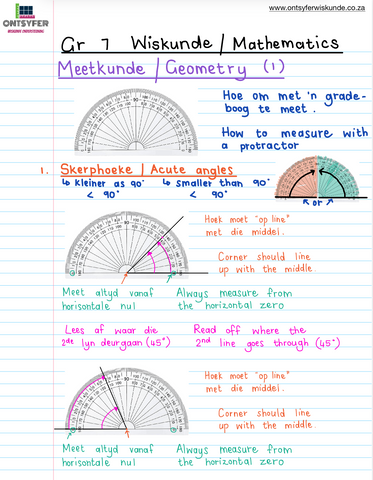 www.ontsyferwiskunde.co.za
ONTSYFER
WISKUNDE ONDERSTEUNING
Gr 7 Wiskunde / Mathematics
Meetkunde / Geometry (1)
Hoe om met 'n grade-
boog te meet.
How to measure with
a protractor
1. Skerphoeke / Acute angles
↳ kleiner as 90° ↳ smaller than 90°
< 90° < 90°
↖ or ↗
Hoek moet "op line"
met die middel.
Corner should line
up with the middle
Meet altyd vanaf Always measure from
horisontale nul the horizontal zero
Lees af waar die Read off where the
2de lyn deurgaan (45°) 2nd line goes through (45°)
Hoek moet "op line"
met die middel.
Corner should line
up with the middle
Meet altyd vanaf Always measure from
horisontale nul the horizontal zero